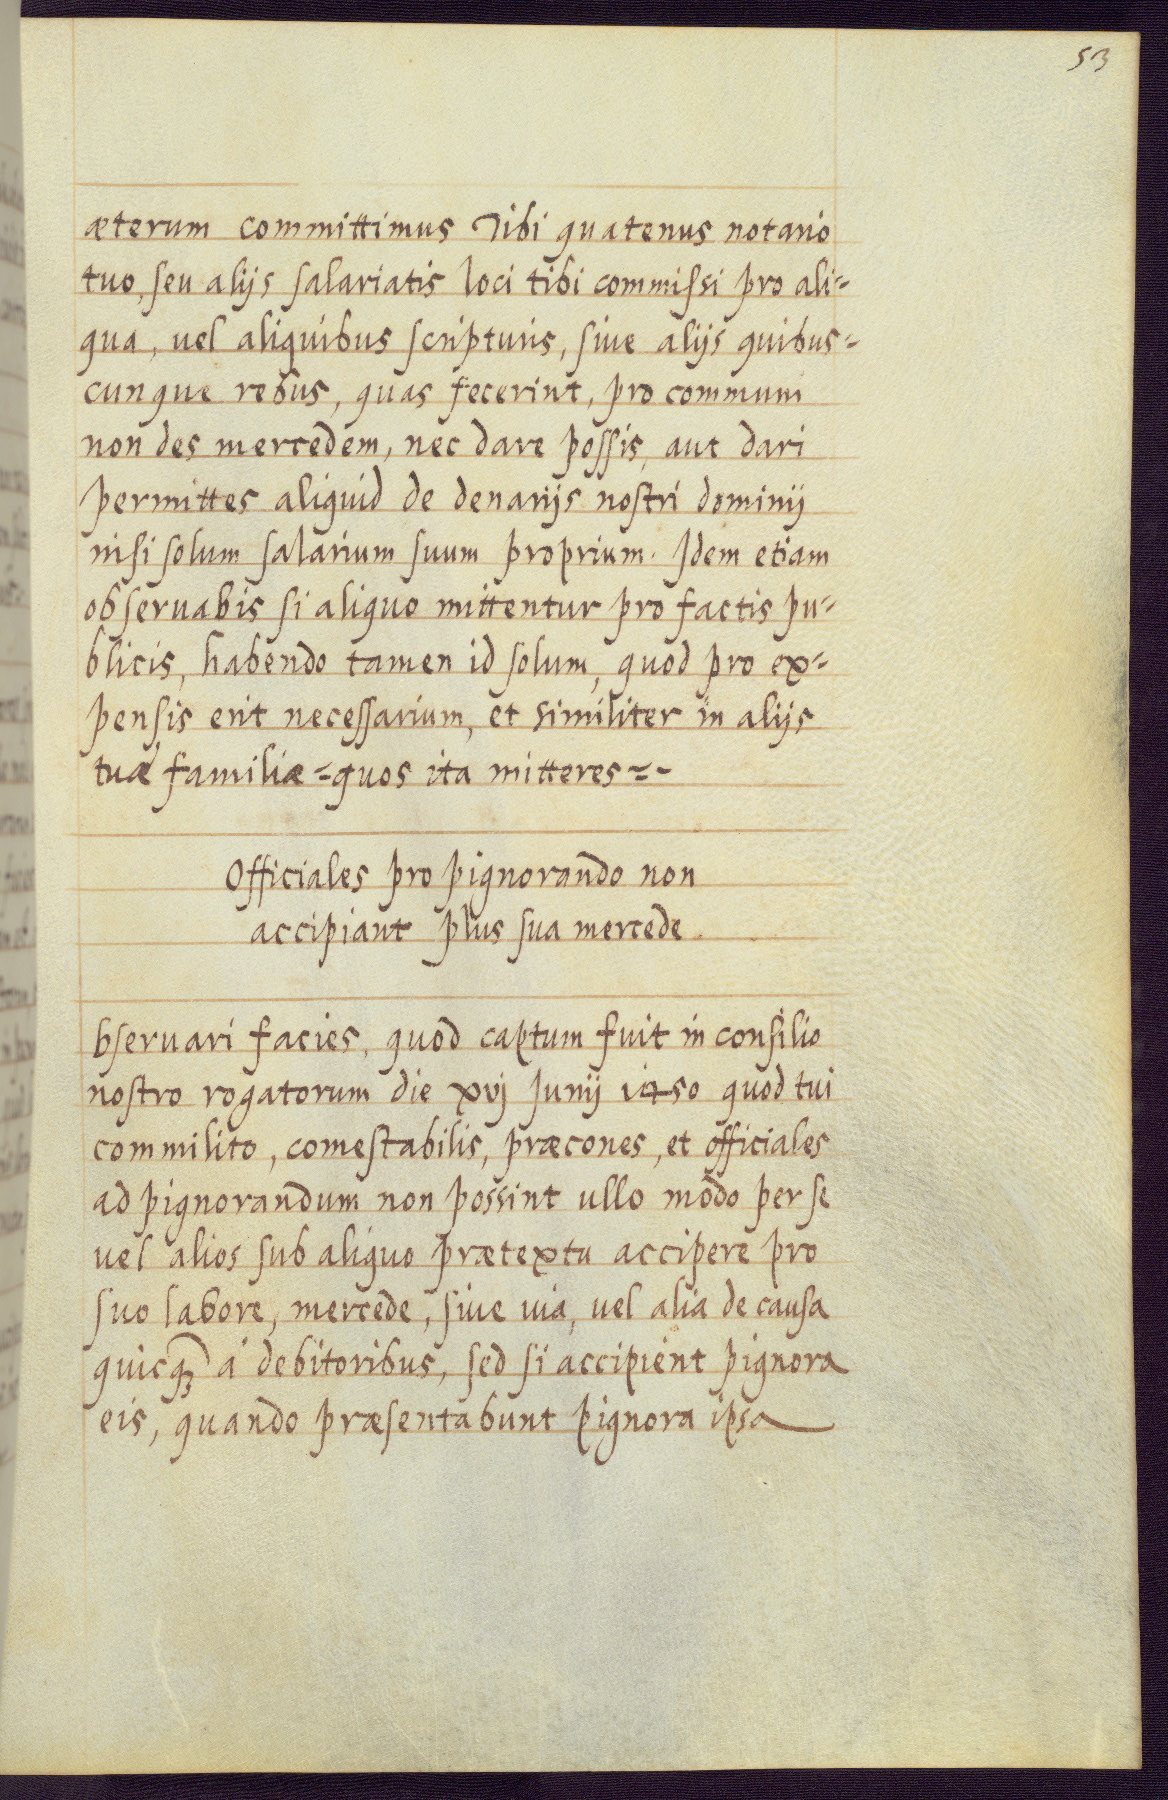 53
æterum committimus Tibi quatenus notario
tuo, seu alijs salariatis loci tibi commissi pro ali=
qua, vel aliquibus scripturis, sive alijs quibus=
cunque rebus, quas fecerint, pro communi
non des mercedem, nec dare possis, aut dari
permittes aliquid de denarijs nostri dominij
nisi solum salarium suum proprium. Idem etiam
observabis si aliquo mittentur pro factis pu=
blicis, habendo tamen id solum, quod pro ex=
pensis erit necessarium, et similiter in alijs
tuæ familiæ=quos ita mitteres=-
Officiales pro pignorando non
accipiant plus sua mercede.
bservari facies, quod captum fuit in consilio
nostro rogatorum die xvj Junij 1450 quod tui
commilito, comestabilis, præcones, et officiales
ad pignorandum non possint ullo modo per se
vel alios sub aliquo prætextu accipere pro
suo labore, mercede, sive via, vel alia de causa
quicq̃ȝ à debitoribus, sed si accipient pignora
eis, quando præsentabunt pignora ipsa